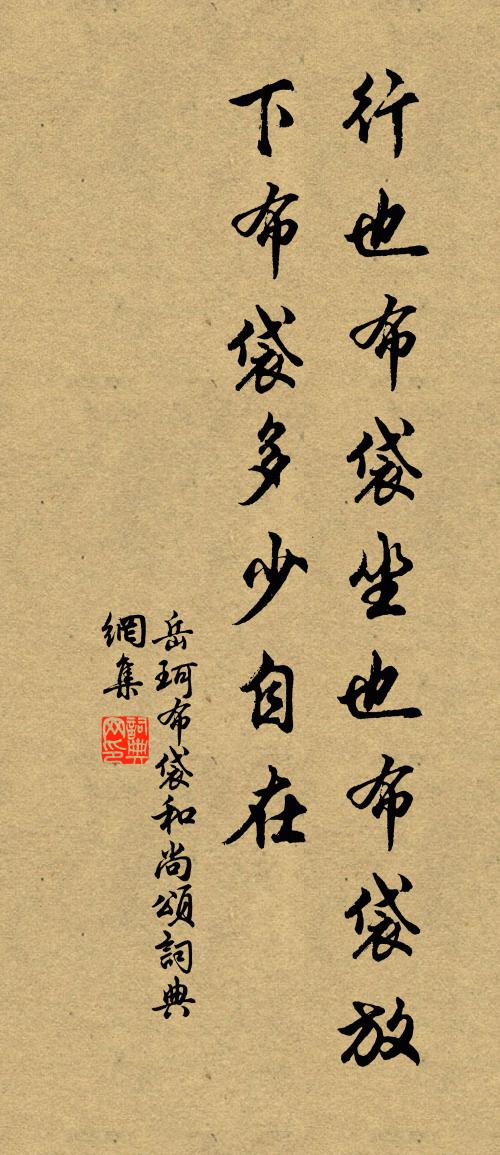 行也布袋坐也布袋放
下布袋多少自在
岳珂布袋和尚頌詞典
網集
詞典
网印